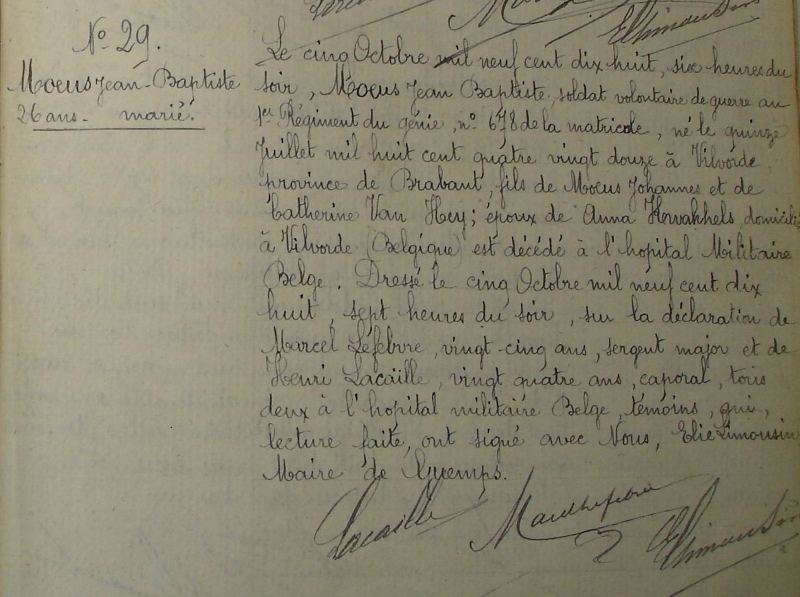 Nº 29.
Moeus Jean-Baptiste
26 ans - marié.
Le cinq Octobre mil neuf cent dix huit, six heures du
soir, Moeus Jean Baptiste, soldat volontaire de guerre au
1er Régiment du génie, nº 678 de la matricole, né le quinze
Juillet mil huit cent quatre vingt douze à Vilvorde
province de Brabant, fils de Moeus Johannes et de
Catherine Van Hey; époux de Anna domicilié
à Vilvorde (Belgique) est décédé à l'hopital Militaire
Belge. Dressé le cinq Octobre mil neuf cent dix
huit, sept heures du soir, sur la déclaration de
Marcel Lefebvre, vingt-cinq ans, sergent major et de
Henri Lacaille, vingt quatre ans, caporal, tous
deux à l'hopital militaire Belge, témoins, qui,
lecture faite, ont signé avec Nous, Elie Limousin
Maire de Guemps.
Lacaille Marcel Lefebvre E Limousin